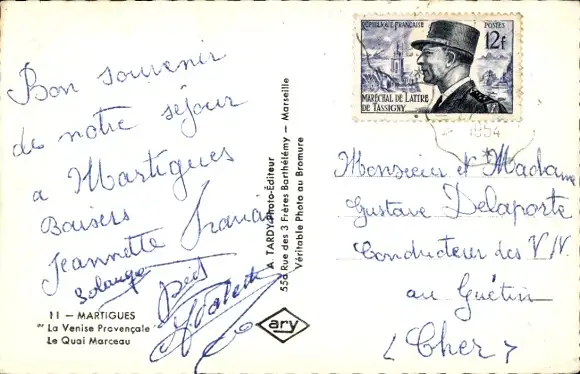 Bon souvenir
de notre séjour
a Martigues
Baisers
Jeannette Francis
Solange
11 — MARTIGUES
"La Venise Provençale"
Le Quai Marceau
A. TARDY Photo-Editeur
55a Rue des 3 Frères Barthélémy — Marseille
Véritable Photo au Bromure
ary
RÉPUBLIQUE FRANÇAISE POSTES
12f
MARÉCHAL DE LATTRE
DE TASSIGNY
1954
Monsieur et Madame
Gustave Delaporte
Conducteur des VN
au Guétin
(Cher)